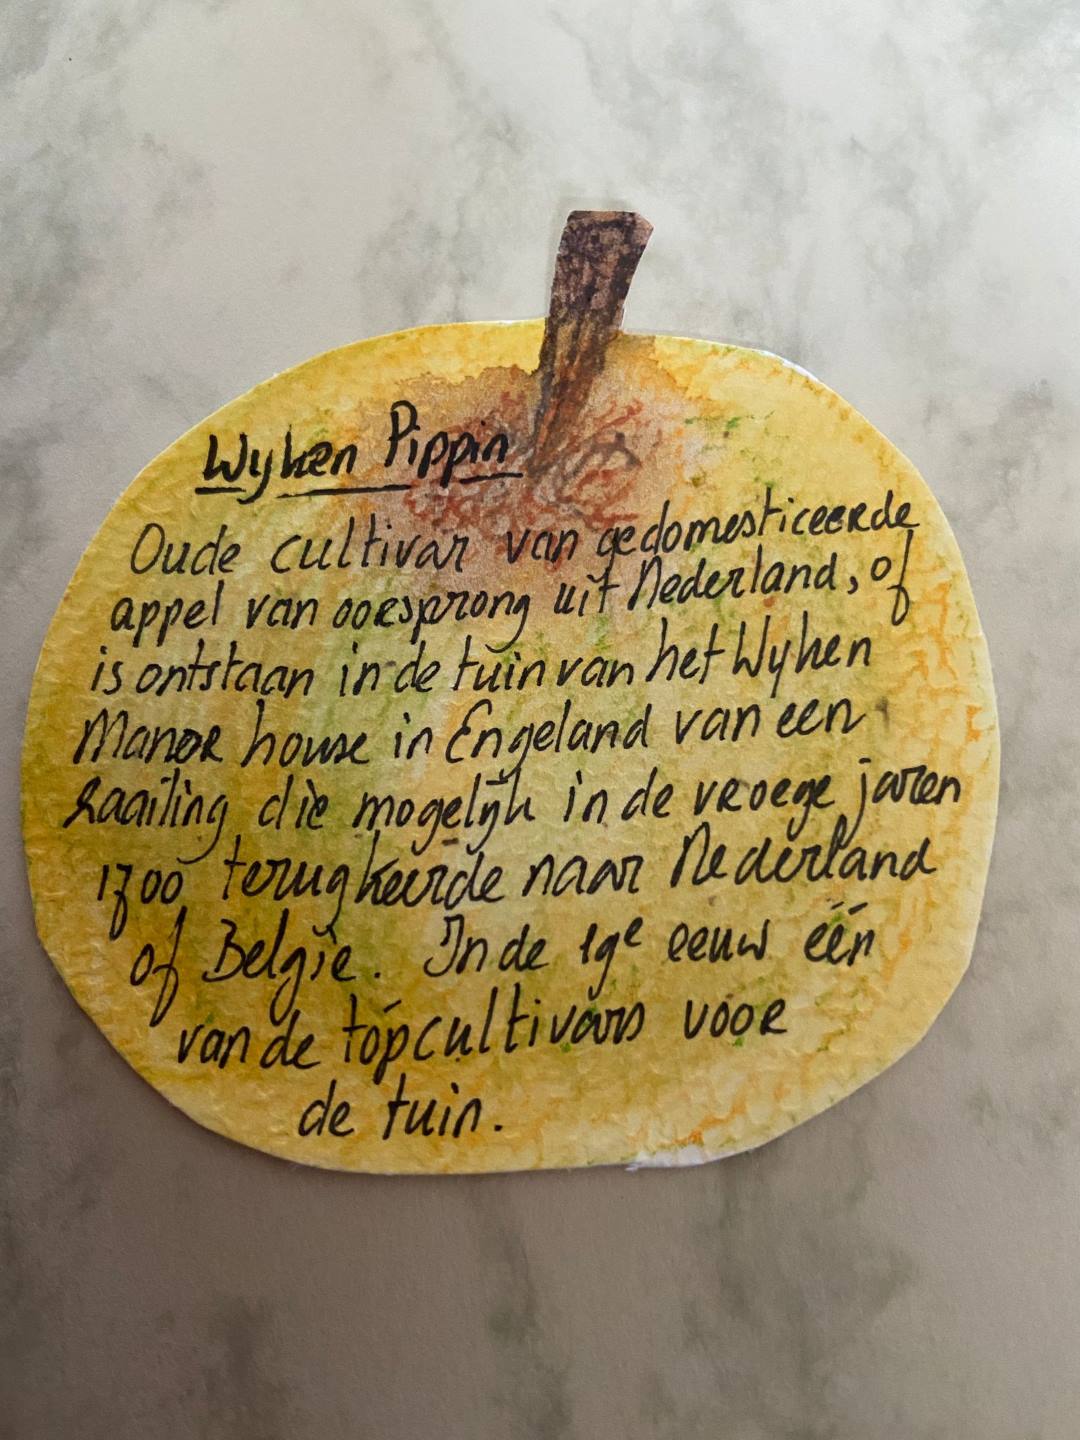 Wyken Pippin
Oude cultivar van gedomesticeerde
appel van oorsprong uit Nederland, of
is ontstaan in de tuin van het Wyken
Manor house in Engeland van een
zaailing die mogelijk in de vroege jaren
1700 terugkeerde naar Nederland
of België. In de 19e eeuw één
van de topcultivars voor
de tuin.